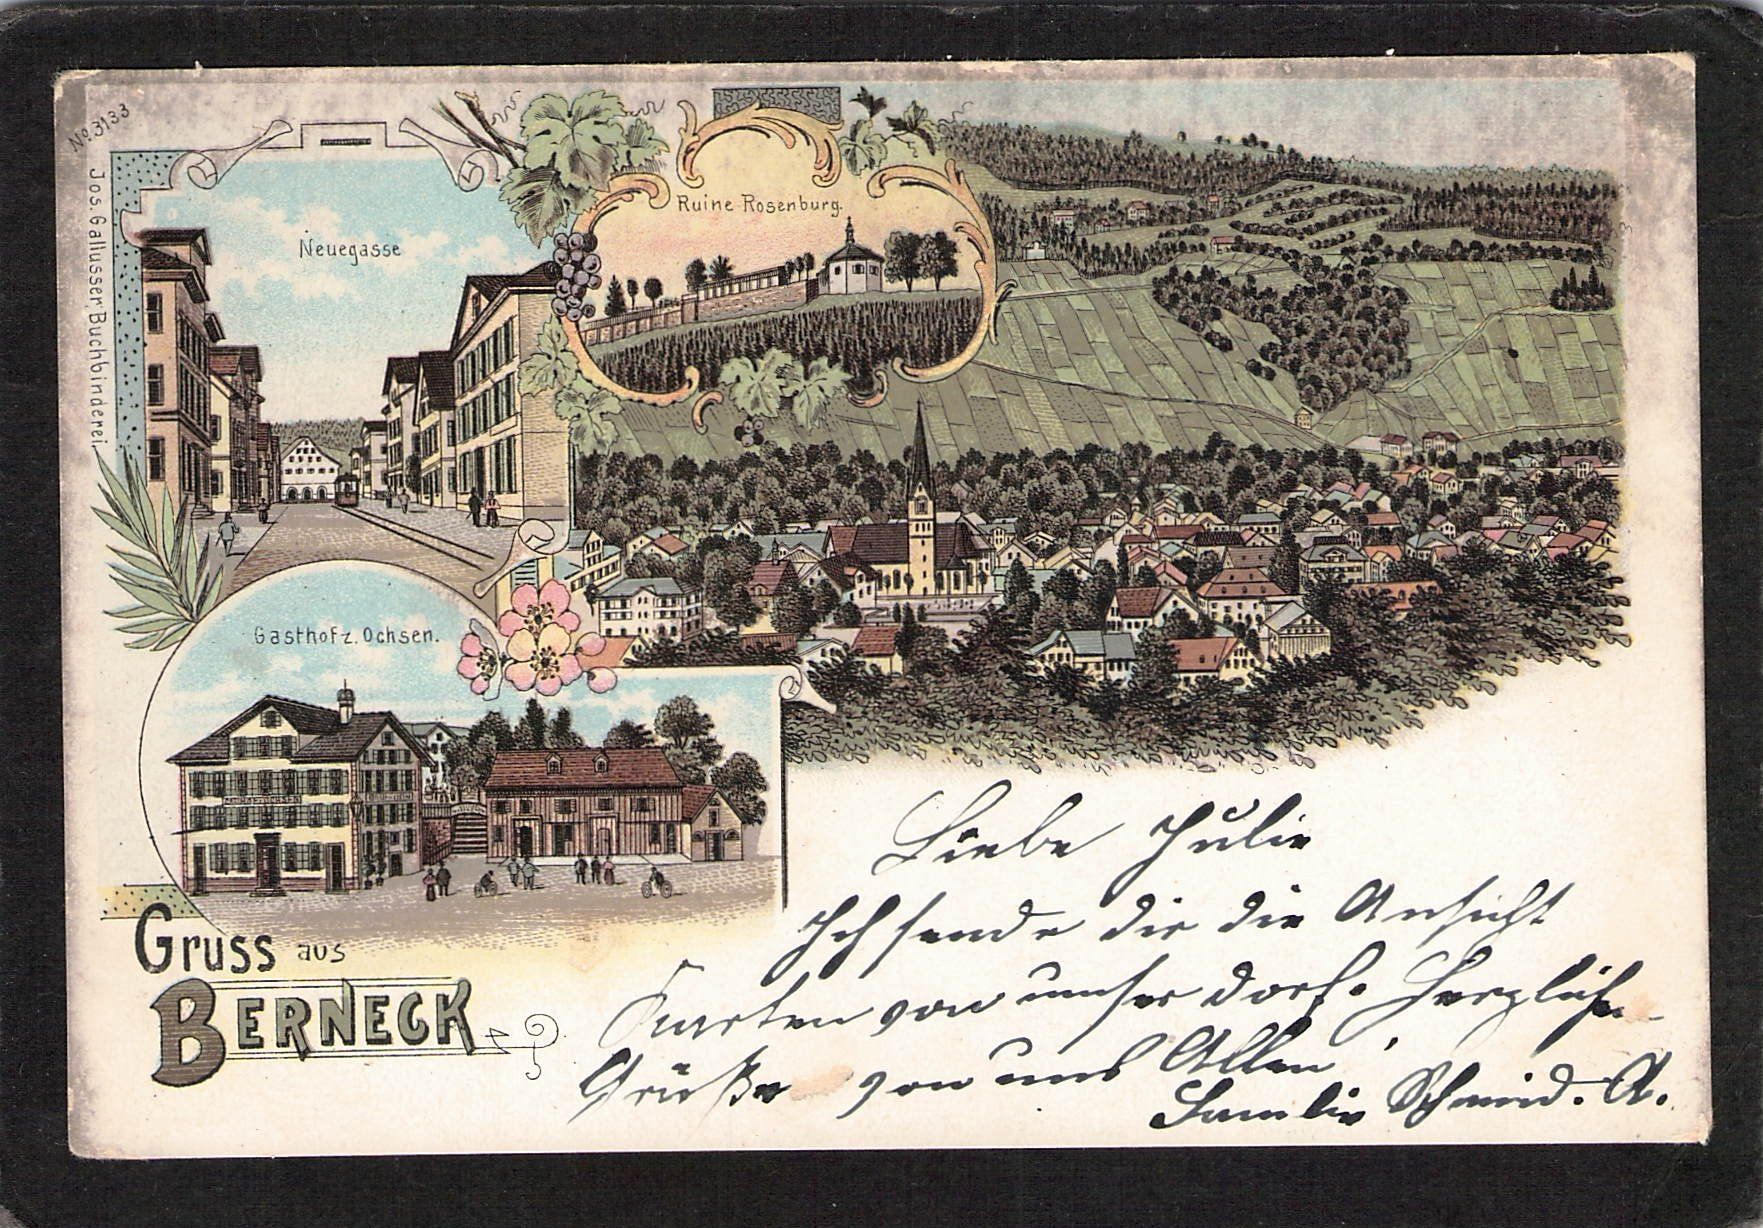 No. 3133
Jos. Gallusser, Buchbinderei.
Neuegasse
Ruine Rosenburg.
Gasthof z. Ochsen.
Gruss aus
BERNECK
Liebe Julie
Ich sende dir die Ansicht
Karten von unser dorf. Herzlichen
Grüße von uns Allen
Familie Schmid. A.